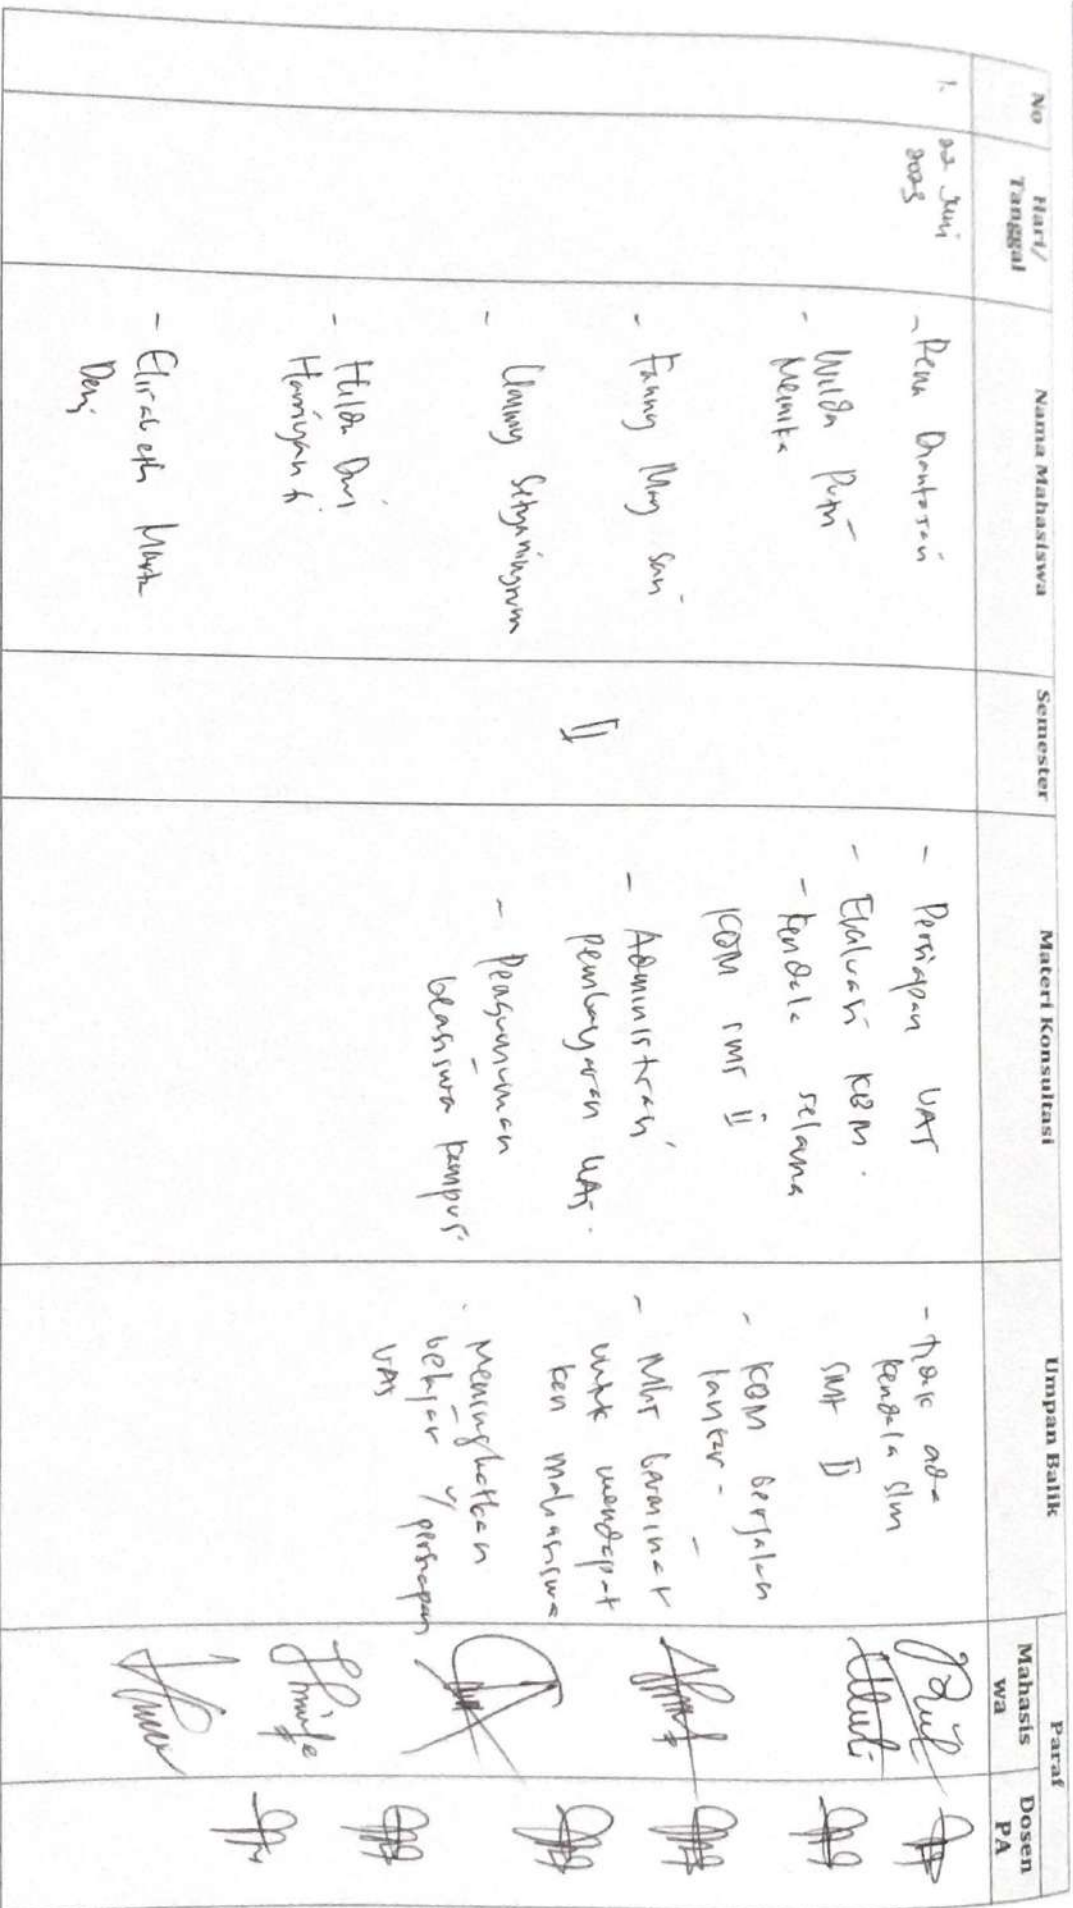 No
Hari/
Tanggal
Nama Mahasiswa
Semester
Materi Konsultasi
Umpan Balik
Paraf
Mahasis
wa
Dosen
PA
1.
22 Juni
2023
- Reni Diantasari
- Wilda Putri
Meinika
- Fanny May Sari
- Ummy Setyaningrum
- Hilda Dwi
Harriyanti
- Elizabeth Marta
Devi
II
- Persiapan UAS
- Evaluasi KBM.
- Kendala selama
KBM smt II
- Administrasi
pembayaran UAS.
- Pengumuman
beasiswa kampus.
- tidak ada
kendala slm
SMT II
- KBM berjalan
lancar-
- Mhs berminat
untuk mendapat
kan mahasiswa
- Meningkatkan
belajar y/ persiapan
UAS